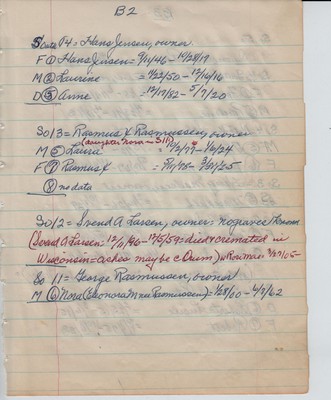 B2
S/Cate 14 = Hans Jensen, owner
F ① Hans Jensen = 9/11/46 - 10/28/17
M ② Laurine = 11/22/50 - 12/16/16
D ③ Anne = 12/17/82 - 5/7/20
So 13 = Rasmus K Rasmussen, owner
(daughter Nora - S11)
M ⑤ Laura = 10/3/77 - 1/6/24
F ⑦ Rasmus K = 5/11/78 - 3/21/25
⑧ no data
So 12 = Svend A Larsen, owner = no graves
(Svend A Larsen = 12/11/46 - 12/5/59 = died & cremated in
Wisconsin = ashes maybe c Mrs 3/27/05 -
So 11 = George Rasmussen, owner
M ⑥ Nora (Eleonora Rasmussen) = 1/28/00 - 4/7/62